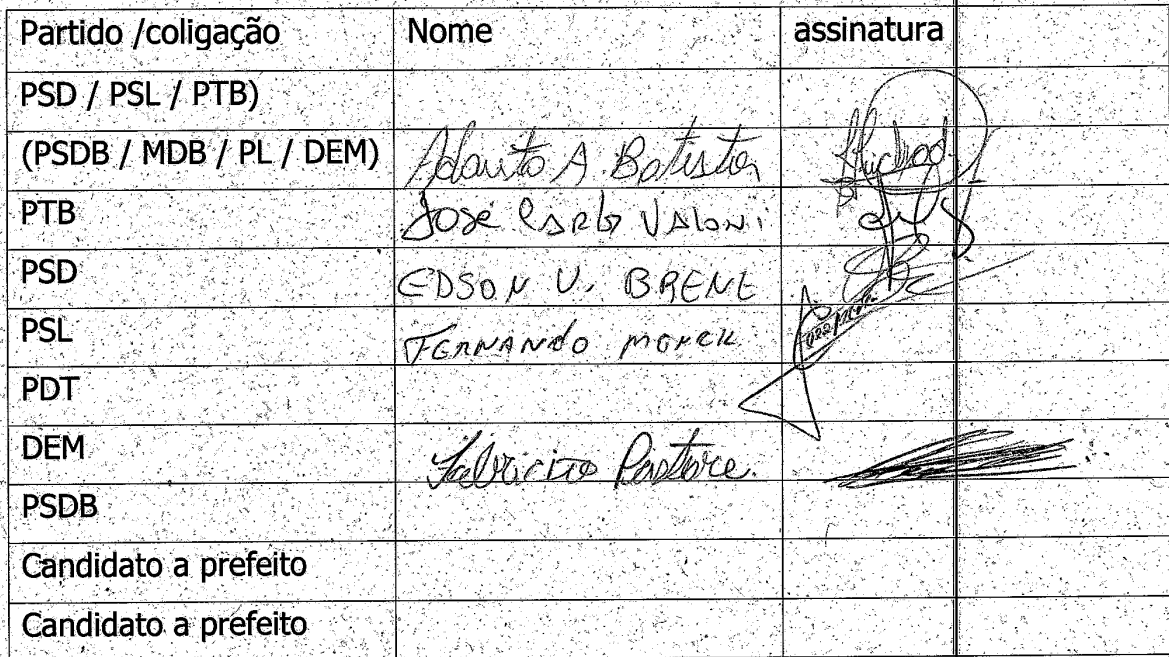 Partido /coligação Nome assinatura
PSD / PSL / PTB)
(PSDB / MDB / PL / DEM) Adauto A Batista
PTB José Carlo Valoni
PSD EDSON V. BRENE
PSL FERNANDO
PDT
DEM Fabricio Pastore.
PSDB
Candidato a prefeito
Candidato a prefeito